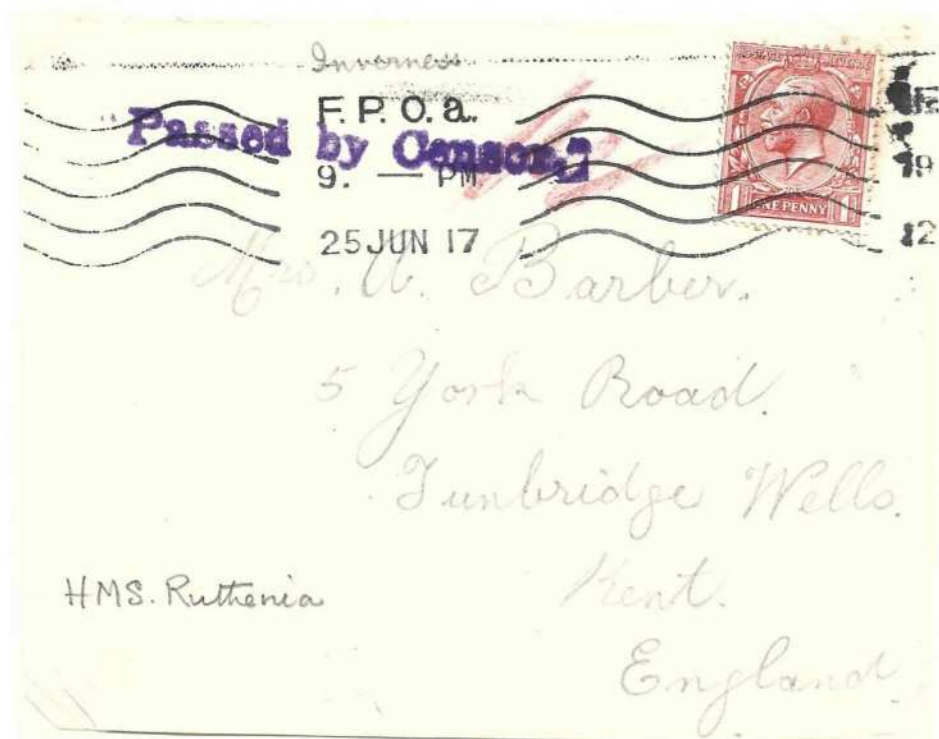 Inverness
F.P.O.a.
Passed by Censor
9. — PM
25 JUN 17
ONE PENNY
19
12
Mrs. A. Barber.
5 York Road.
Tunbridge Wells.
Kent.
England
HMS. Ruthenia